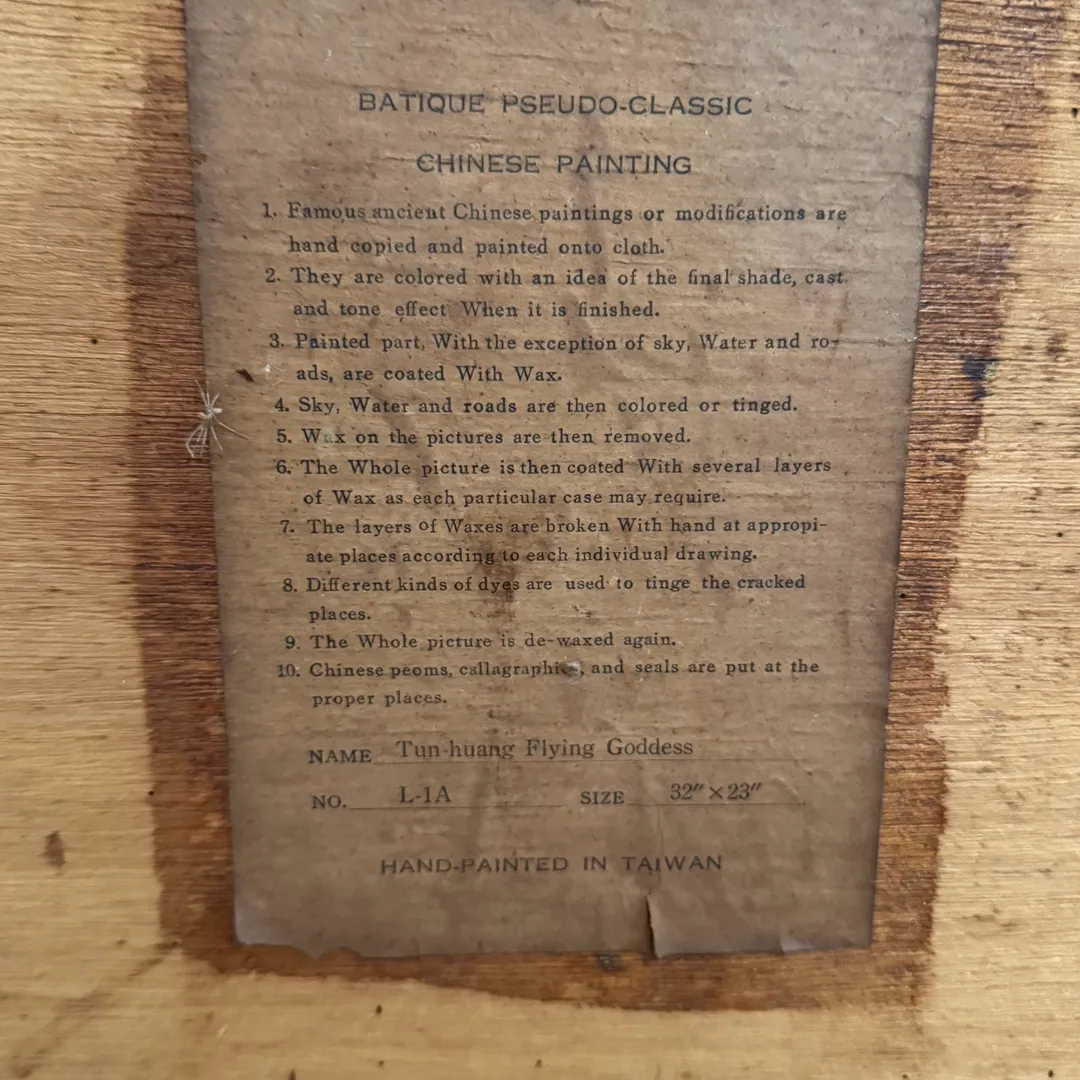 BATIQUE PSEUDO-CLASSIC
CHINESE PAINTING
1. Famous ancient Chinese paintings or modifications are
hand copied and painted onto cloth.
2. They are colored with an idea of the final shade, cast
and tone effect When it is finished.
3. Painted part, With the exception of sky, Water and ro-
ads, are coated With Wax.
4. Sky, Water and roads are then colored or tinged.
5. Wax on the pictures are then removed.
6. The Whole picture is then coated With several layers
of Wax as each particular case may require.
7. The layers of Waxes are broken With hand at appropi-
ate places according to each individual drawing.
8. Different kinds of dyes are used to tinge the cracked
places.
9. The Whole picture is de-waxed again.
10. Chinese peoms, callagraphies, and seals are put at the
proper places.
NAME Tun-huang Flying Goddess
NO. L-1A SIZE 32″×23″
HAND-PAINTED IN TAIWAN